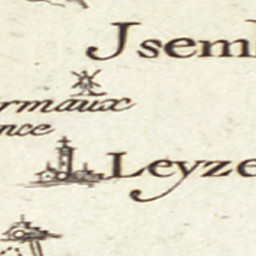 Jsem
ermaux
nce
Leyze